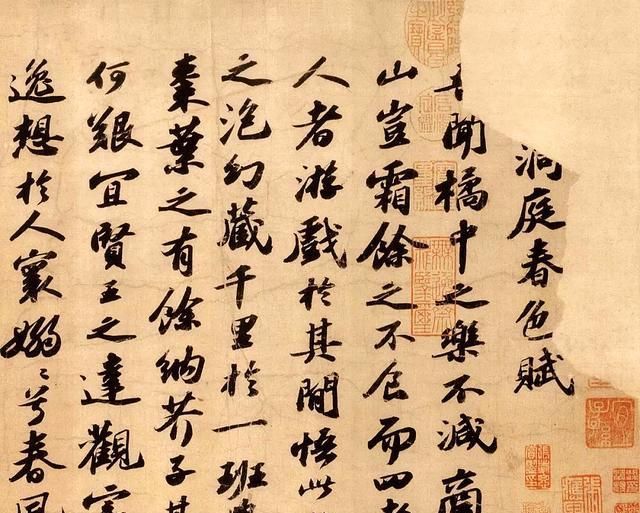 洞庭春色賦
聞橘中之樂不減商
山豈霜餘之不食而四
人者游戲於其間悟此
之泡幻藏千里於一班
棗葉之有餘納芥子其
何艱宜賢王之達觀寄
逸想於人寰嫋〻兮春風